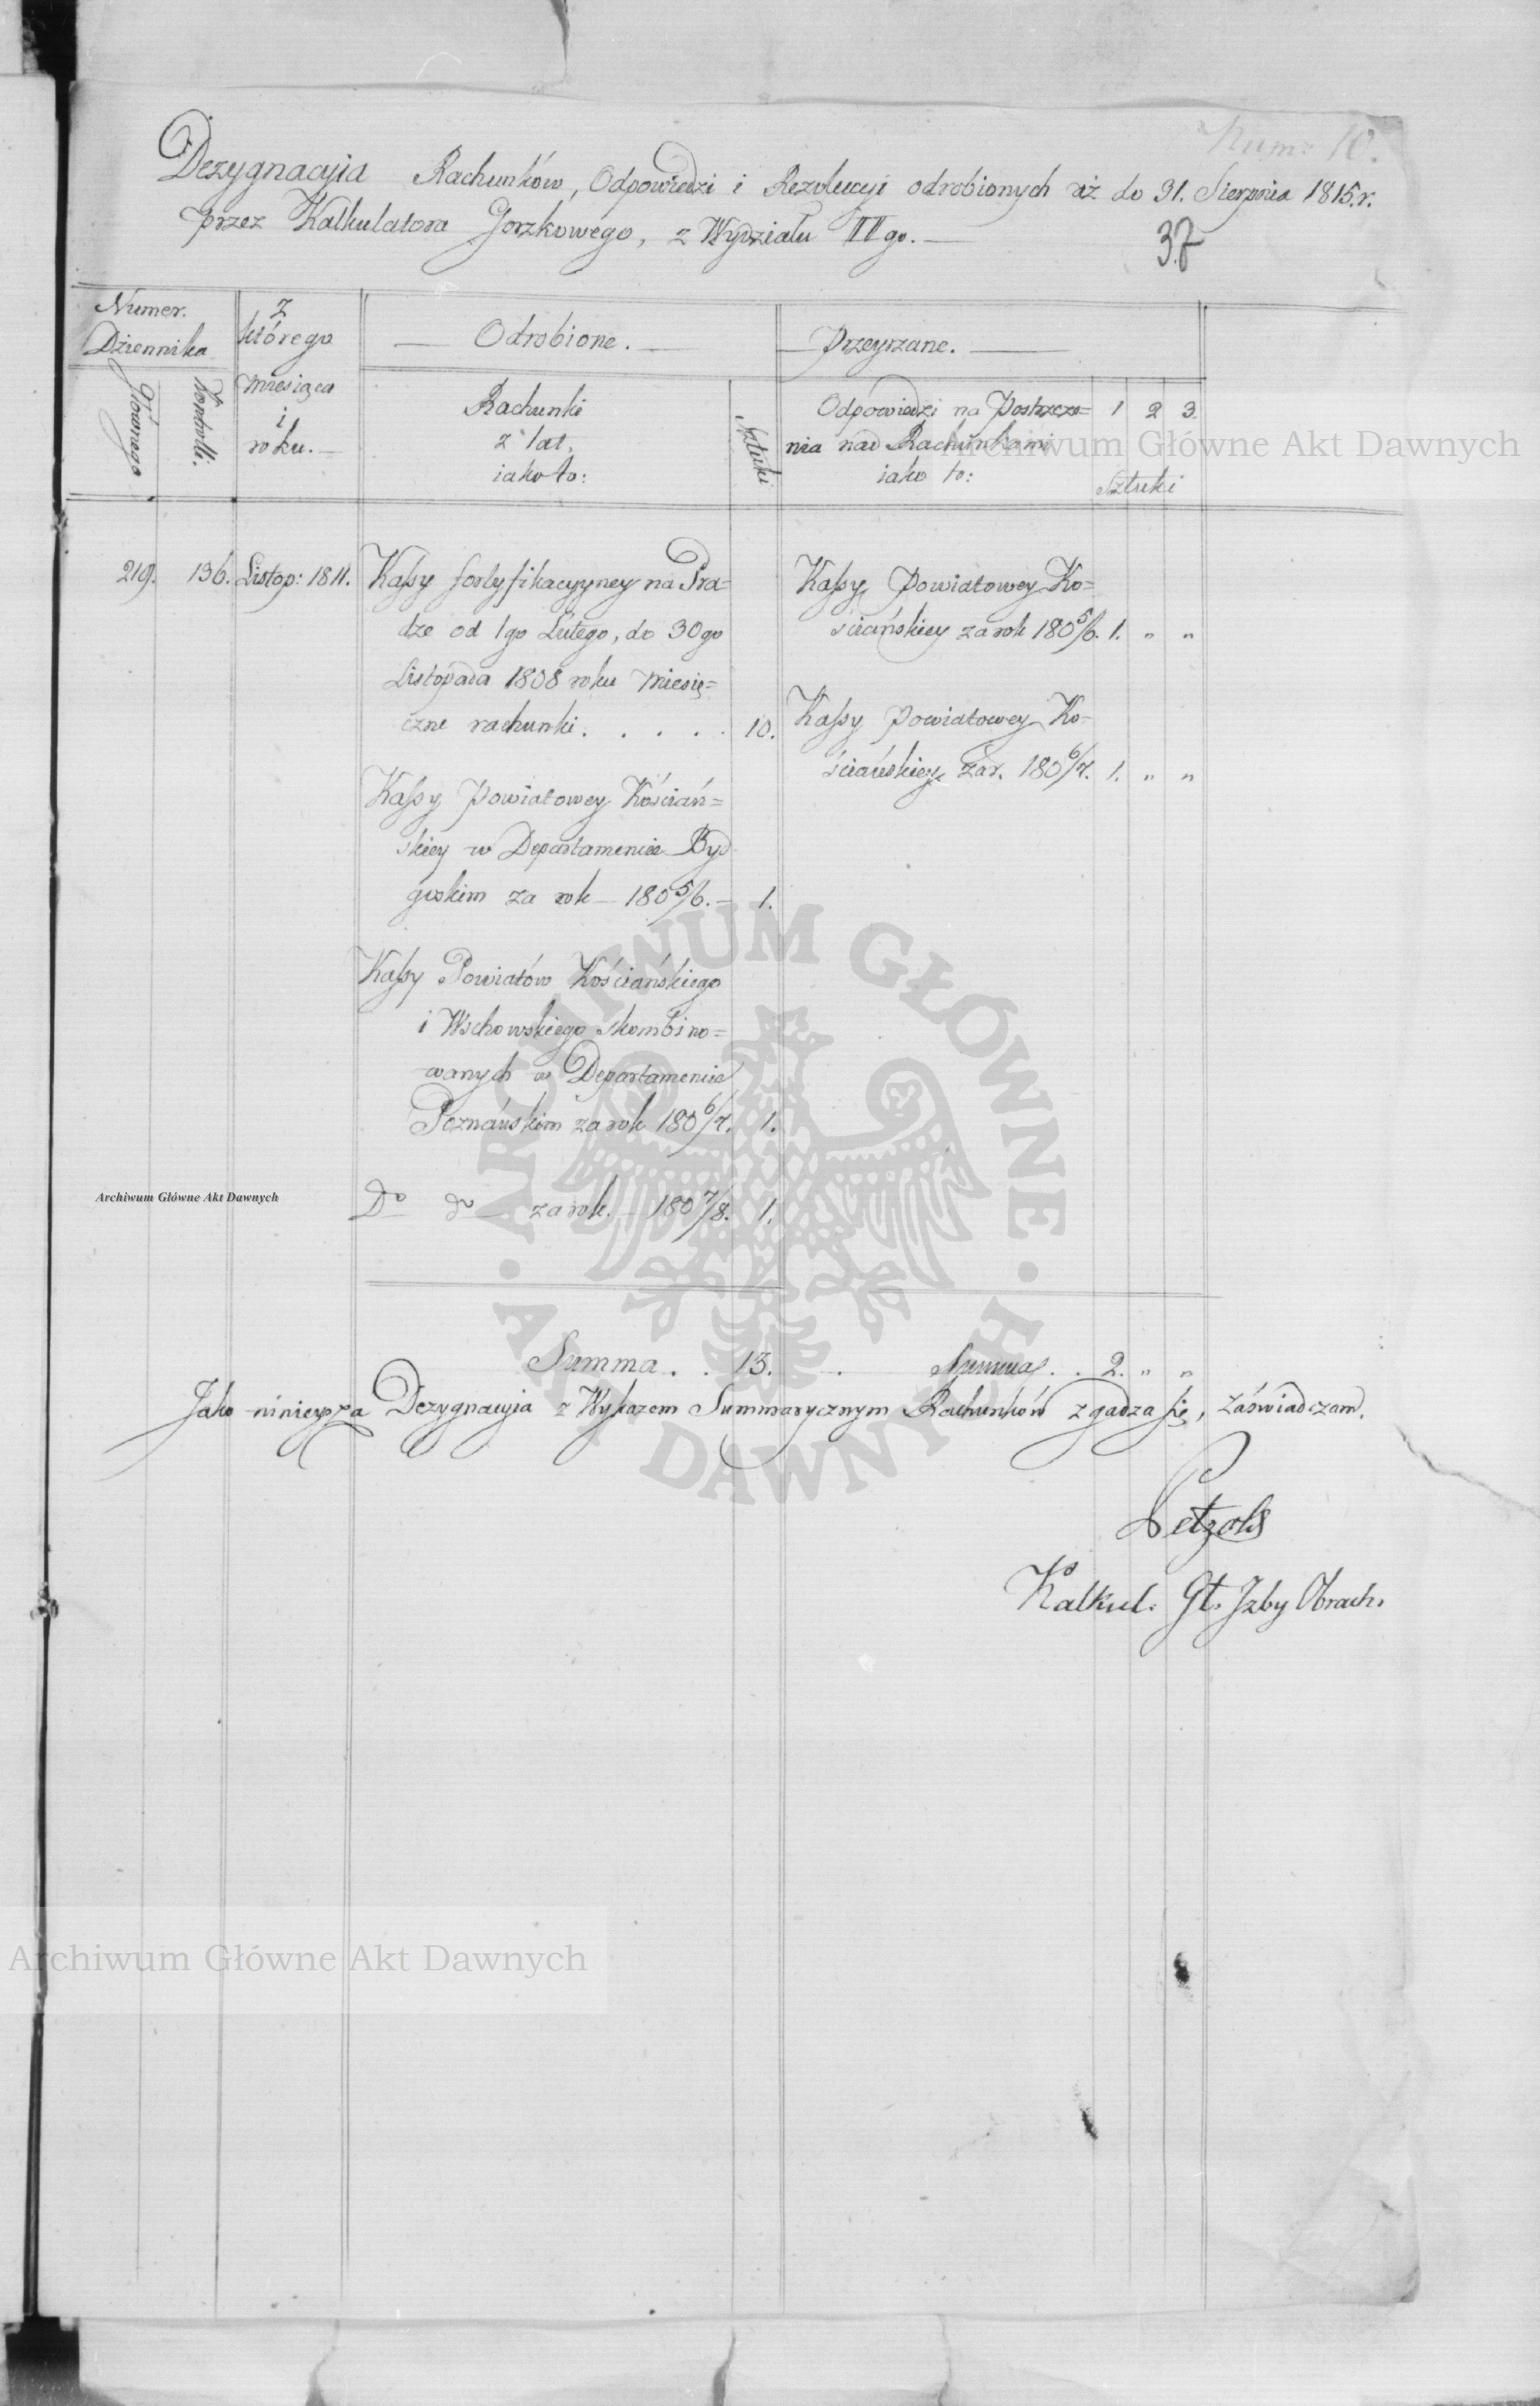 Num: 10.
Dezygnacyia Rachunków, Odpowiedzi i Rezolucyi odrobionych aż do 31. Sierpnia 1815.r.
przez Kalkulatora Gorzkowego, z Wydziału IIgo. —
37
Numer.
Dziennika
Głównego
Kontrolli.
z
którego
miesiąca
i
roku. —
— Odrobione. —
Rachunki
z lat,
iako to:
Sztuki
— Przeyrzane. —
Odpowiedzi na Postrzeże=
nia nad Rachunkami
iako to:
1 2 3.
Sztuki
219. 136. Listop: 1811.
Kassy fortyfikacyyney na Pra=
dze od 1go Lutego, do 30go
Listopada 1808 roku miesię=
czne rachunki . . . . . 10.
Kassy Powiatowey Kościań=
skiey w Departamencie Byd
goskim za rok — 180 5/6. — 1.
Kassy Powiatów Kościańskiego
i Wschowskiego skombino=
wanych w Departamencie
Poznańskim za rok 180 6/7. 1.
Do do — za rok. — 180 7/8. 1.
Kassy Powiatowey Ko=
ściańskiey za rok 180 5/6. 1. „ „
Kassy Powiatowey Ko=
ściańskiey za r. 180 6/7. 1. „ „
Summa . . 13.
Summa . . 2. „ „
Jako ninieysza Dezygnacyia z Wykazem Summarycznym Rachunków zgadza się, zaświadczam.
Petzold
Kalkul. Gł. Izby Obrach.
Archiwum Główne Akt Dawnych
Archiwum Główne Akt Dawnych
Archiwum Główne Akt Dawnych
· ARCHIWUM GŁÓWNE · AKT DAWNYCH